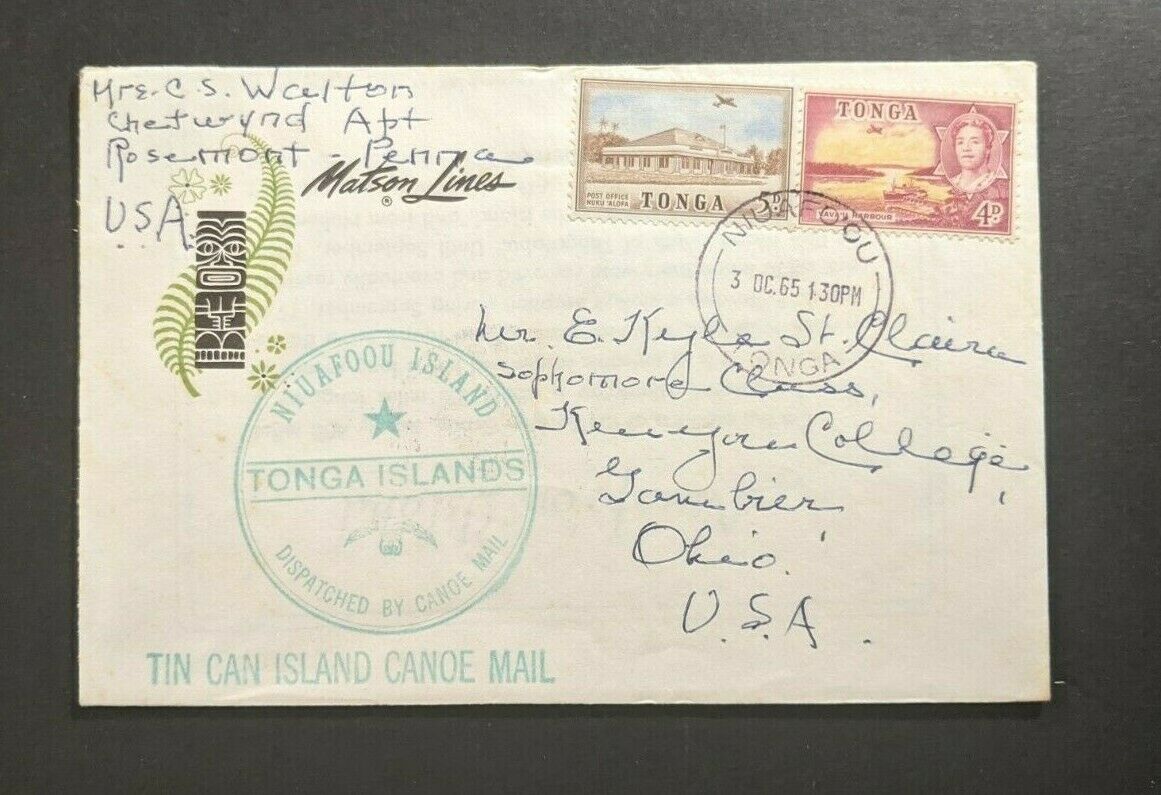 Mrs. C. S. Walton
Chetwynd Apt
Rosemont - Penna
U.S.A.
Matson Lines
®
POST OFFICE
NUKU'ALOFA
TONGA
5D
TONGA
VAVA'U HARBOUR
4D
NIUAFOOU
3 OC.65 1.30PM
TONGA
Mr. E. Kyle St. Claire
Sophomore Class,
Kenyon College,
Gambier
Ohio.
U.S.A.
NIUAFOOU ISLAND
TONGA ISLANDS
DISPATCHED BY CANOE MAIL
TIN CAN ISLAND CANOE MAIL